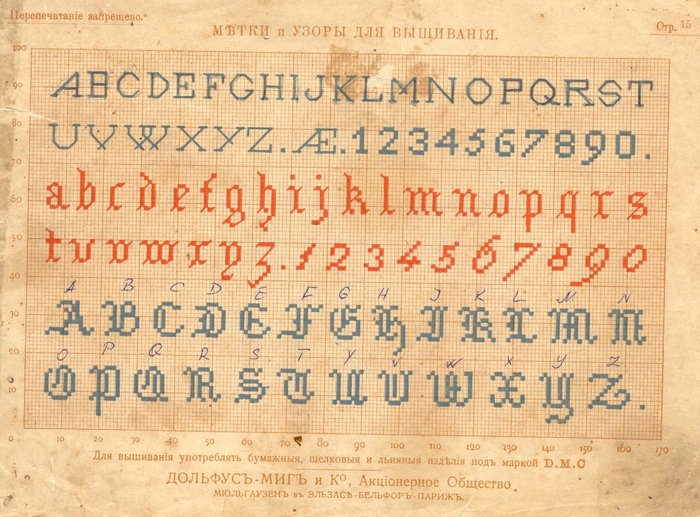 Перепечатаніе запрещено.
Стр. 15
МѢТКИ и УЗОРЫ ДЛЯ ВЫШИВАНІЯ.
100
90
ABCDEFGHIJKLMNOPQRST
80
UVWXYZ.Æ.1234567890.
70
abcdefghijklmnopqrs
60
50
tuvwxyz.1234567890
40
A B C D E F G H J K L M N
30
ABCDEFGHIKLMN
20
O P Q R S T Y V W X Y Z
10
OPQRSTUVWXYZ.
0
0 10 20 30 40 50 60 70 80 90 100 110 120 130 140 150 160 170
Для вышиванія употреблять бумажныя, шелковыя и льняныя издѣлія подъ маркой D.M.C
ДОЛЬФУСЪ-МИГЪ и Ко, Акціонерное Общество.
МЮЛЬГАУЗЕНЪ въ ЭЛЬЗАСѢ-БЕЛЬФОРЪ-ПАРИЖЪ.